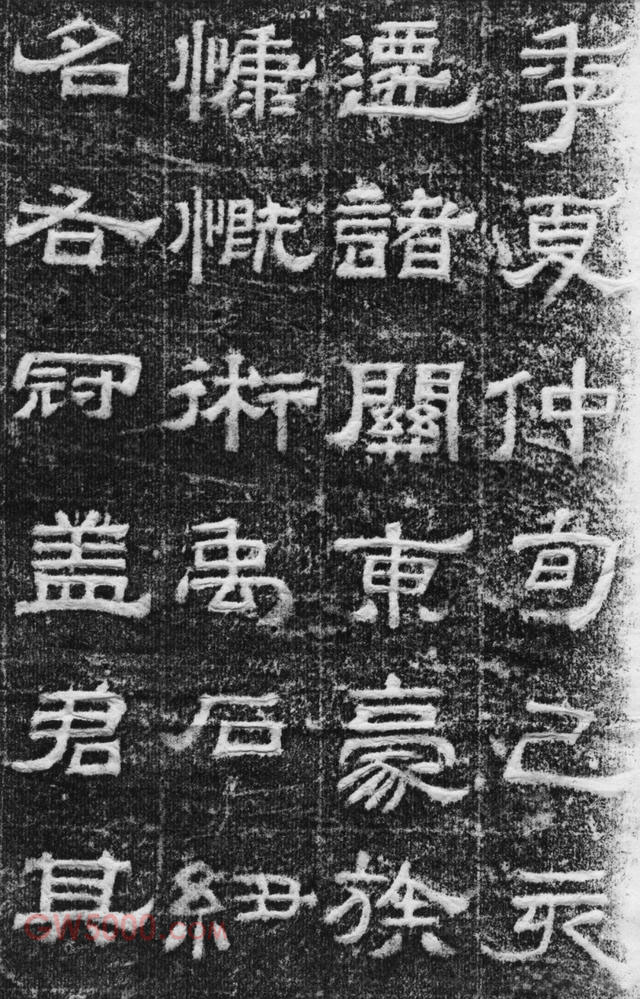 季夏仲旬己亥
遷諸關東豪族
慷慨術禹石紐
名右冠盖君其
GW5000.com